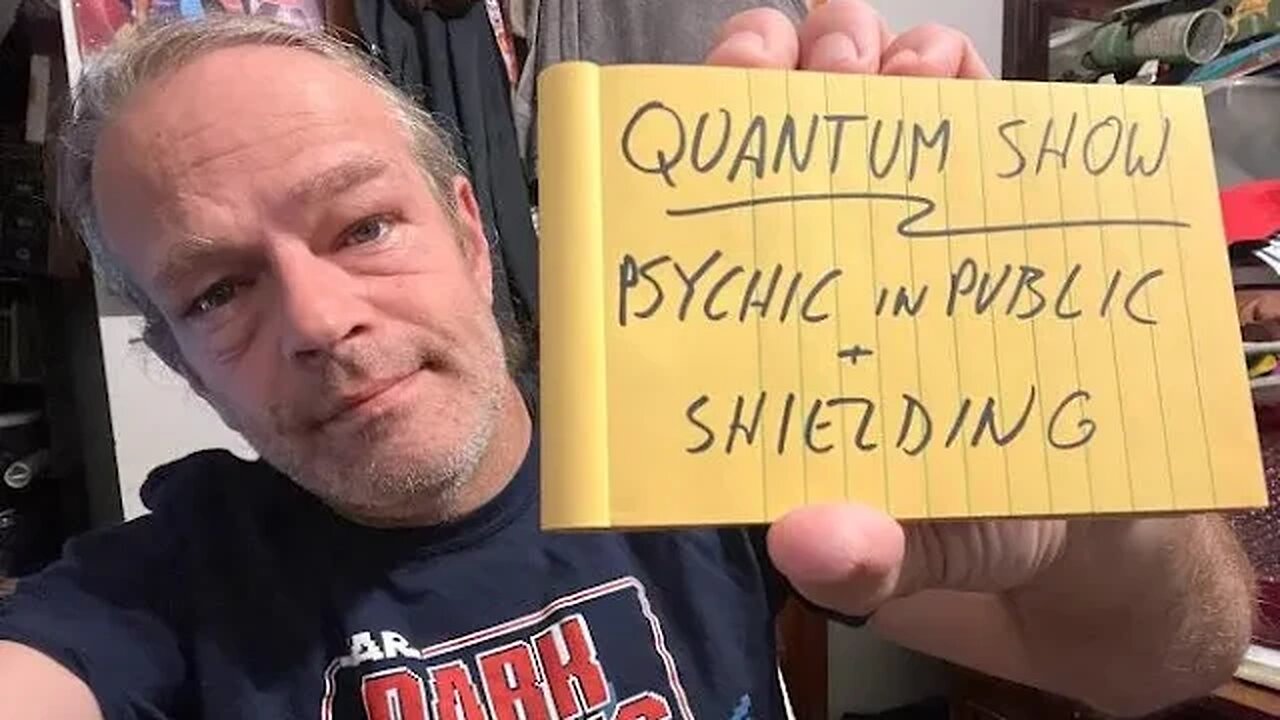 QUANTUM SHOW
PSYCHIC IN PUBLIC
+
SHIELDING
DARK